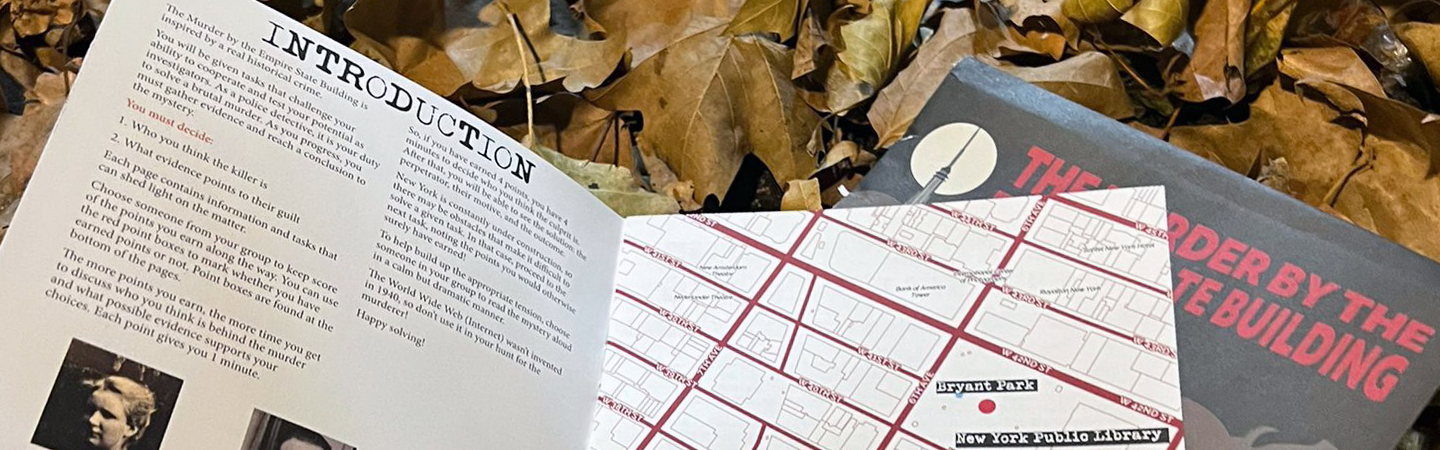 INTRODUCTION
The Murder by the Empire State Building is
inspired by a real historical crime.
You will be given tasks that challenge your
ability to cooperate and test your potential as
investigators. As a police detective, it is your duty
to solve a brutal murder. As you progress, you
must gather evidence and reach a conclusion to
the mystery.
You must decide:
1. Who you think the killer is
2. What evidence points to their guilt
Each page contains information and tasks that
can shed light on the matter.
Choose someone from your group to keep score
of the points you earn along the way. You can use
the red point boxes to mark whether you have
earned points or not. Point boxes are found at the
bottom of the pages.
The more points you earn, the more time you get
to discuss who you think is behind the murder
and what possible evidence supports your
choices. Each point gives you 1 minute.
So, if you have earned 4 points, you have 4
minutes to decide who you think the culprit is.
After that, you will be able to see the solution: the
perpetrator, their motive, and the outcome.
New York is constantly under construction, so
there may be obstacles that make it difficult to
solve a given task. In that case, proceed to the
next task, noting the points you would otherwise
surely have earned!
To help build up the appropriate tension, choose
someone in your group to read the mystery aloud
in a calm but dramatic manner.
The World Wide Web (Internet) wasn't invented
in 1940, so don't use it in your hunt for the
murderer!
Happy solving!
W 41ST ST
New Amsterdam
Theatre
Nederlander Theatre
W 40TH ST
W 39TH ST
W 38TH ST
7TH AVE
W 44TH ST
W 43RD ST
Bank of America
Tower
W 41ST ST
W 40TH ST
6TH AVE
6TH AVE
W 45TH ST
Sofitel New York Hotel
International Center
of Photography
W 43RD ST
W 43RD S
W 42ND ST
W 42ND ST
Bryant Park
New York Public Library
THE
RDER BY THE
TE BUILDING